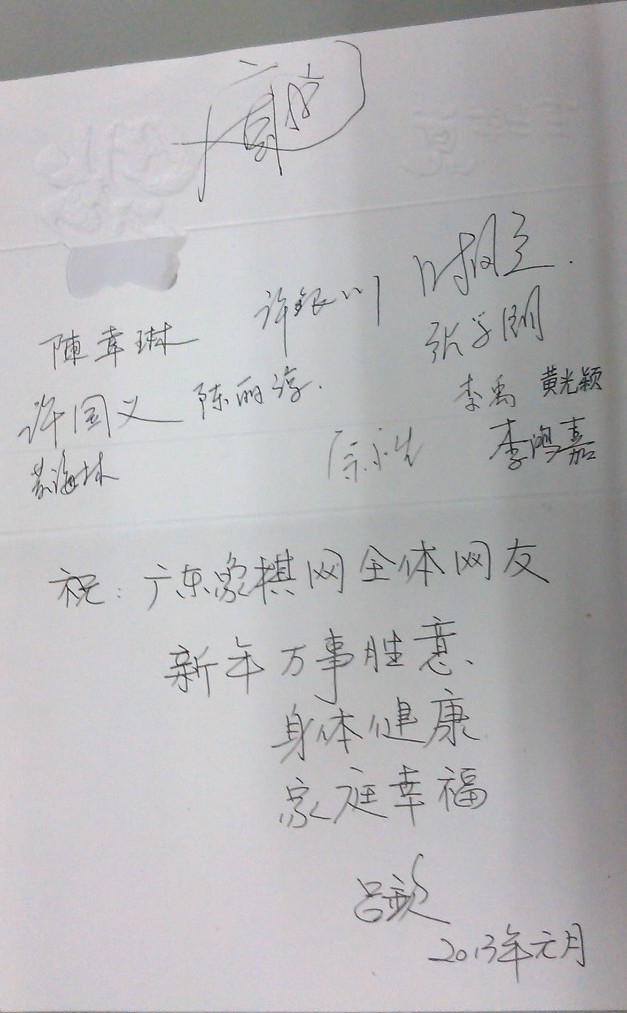 许银川 时凤兰
陳幸琳 张学潮
许国义 陈丽淳 李禹 黄光颖
李鸿嘉
祝：广东象棋网全体网友
新年万事胜意、
身体健康
家庭幸福
吕钦
2013年元月